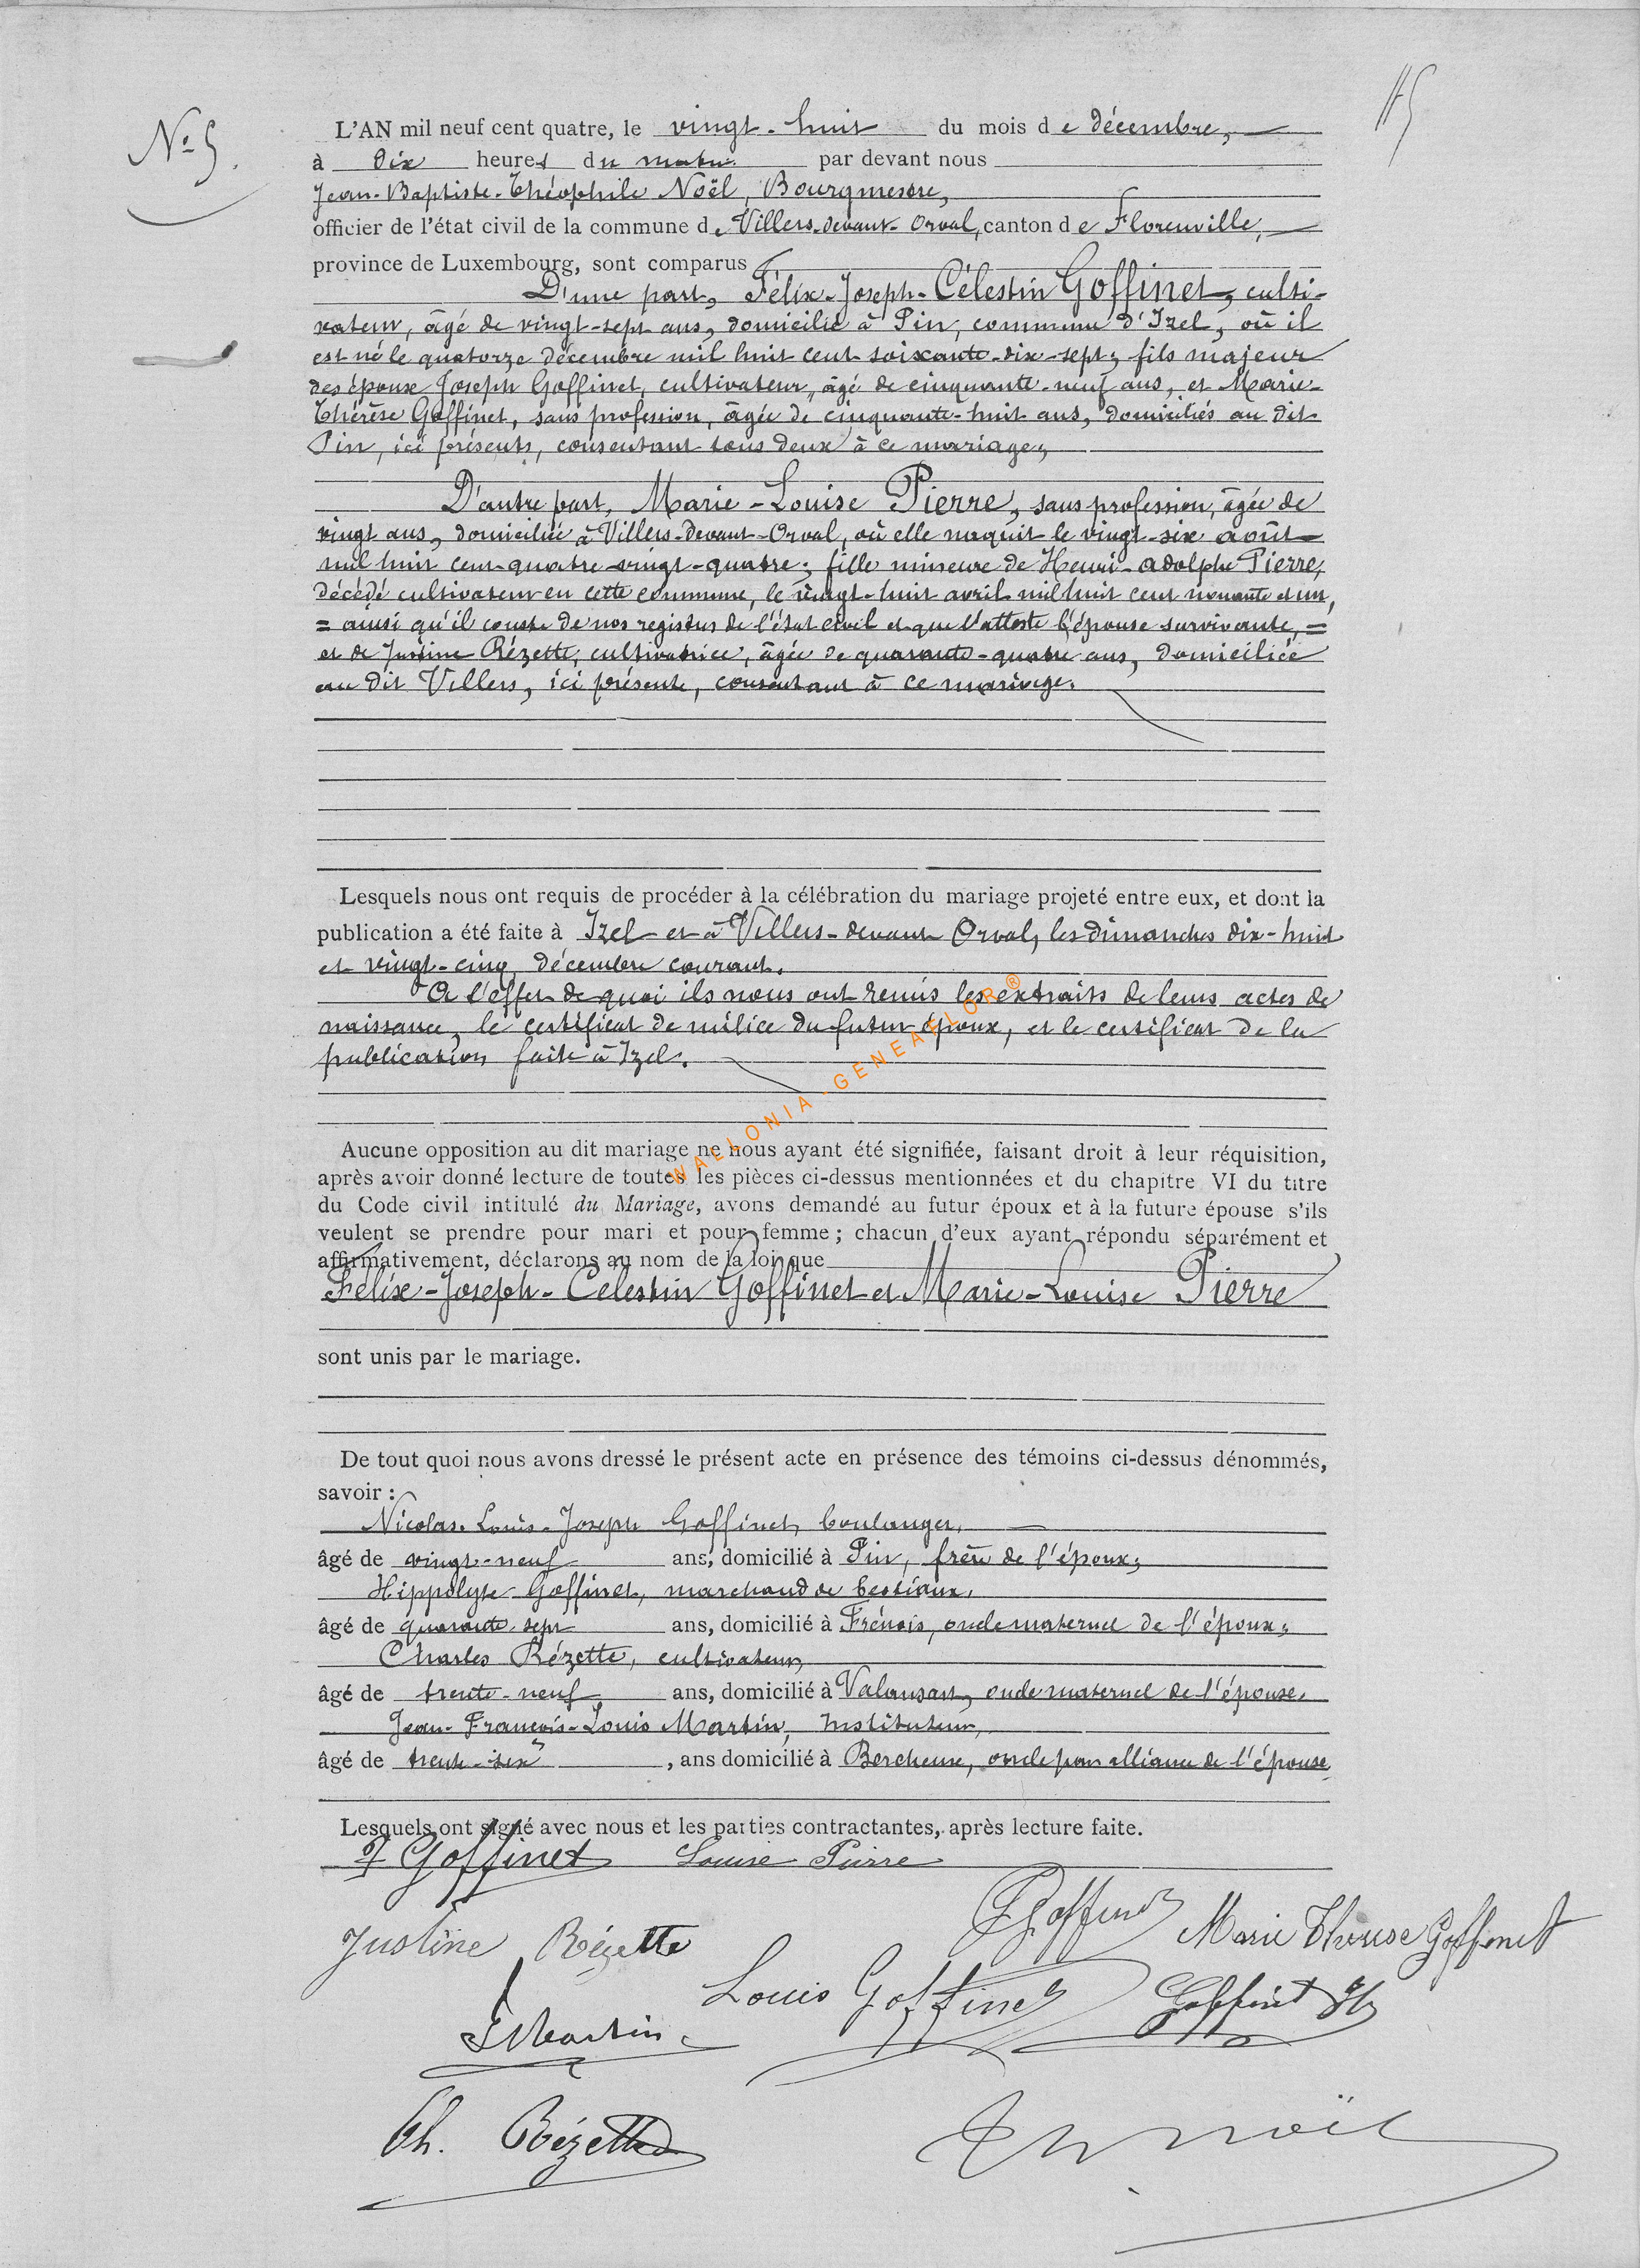 N° 5.
L'AN mil neuf cent quatre, le vingt-huit du mois de décembre,
à dix heures du matin par devant nous
Jean-Baptiste-Théophile Noël, Bourgmestre,
officier de l'état civil de la commune de Villers-devant-Orval, canton de Florenville,
province de Luxembourg, sont comparus
D'une part, Félix-Joseph-Célestin Goffinet, culti-
vateur, âgé de vingt-sept ans, domicilié à Pin, commune d'Izel, où il
est né le quatorze décembre mil huit cent soixante-dix-sept, fils majeur
des époux Joseph Goffinet, cultivateur, âgé de cinquante-neuf ans, et Marie-
Thérèse Goffinet, sans profession, âgée de cinquante-huit ans, domiciliés au dit
Pin, ici présents, consentant tous deux à ce mariage,
D'autre part, Marie-Louise Pierre, sans profession, âgée de
vingt ans, domiciliée à Villers-devant-Orval, où elle naquit le vingt-six août
mil huit cent quatre-vingt-quatre; fille mineure de Henri-Adolphe Pierre,
décédé cultivateur en cette commune, le vingt-huit avril mil huit cent nonante et un,
= ainsi qu'il conste de nos registres de l'état civil et que l'atteste l'épouse survivante, =
et de Justine Rézette, cultivatrice, âgée de quarante-quatre ans, domiciliée
au dit Villers, ici présente, consentant à ce mariage.
Lesquels nous ont requis de procéder à la célébration du mariage projeté entre eux, et dont la
publication a été faite à Izel et à Villers-devant Orval, les dimanches dix-huit
et vingt-cinq décembre courant.
A l'effet de quoi ils nous ont remis les extraits de leurs actes de
naissance, le certificat de milice du futur époux, et le certificat de la
publication faite à Izel.
WALLONIA-GENEAFLOR®
Aucune opposition au dit mariage ne nous ayant été signifiée, faisant droit à leur réquisition,
après avoir donné lecture de toutes les pièces ci-dessus mentionnées et du chapitre VI du titre
du Code civil intitulé du Mariage, avons demandé au futur époux et à la future épouse s'ils
veulent se prendre pour mari et pour femme ; chacun d'eux ayant répondu séparément et
affirmativement, déclarons au nom de la loi que
Félix-Joseph-Célestin Goffinet et Marie-Louise Pierre
sont unis par le mariage.
De tout quoi nous avons dressé le présent acte en présence des témoins ci-dessus dénommés,
savoir :
Nicolas-Louis-Joseph Goffinet, boulanger,
âgé de vingt-neuf ans, domicilié à Pin, frère de l'époux;
Hippolyte Goffinet, marchand de bestiaux,
âgé de quarante-sept ans, domicilié à Frénois, oncle maternel de l'époux;
Charles Rézette, cultivateur,
âgé de trente-neuf ans, domicilié à Valansart, oncle maternel de l'épouse,
Jean-François-Louis Martin, Instituteur,
âgé de trente-six , ans domicilié à Bercheux, oncle par alliance de l'épouse.
Lesquels ont signé avec nous et les parties contractantes, après lecture faite.
F Goffinet Louise Pierre
Goffinet Marie Thérèse Goffinet
Justine Rézette
Louis Goffinet Goffinet H
Martin
Ch. Rézette
Th Noël